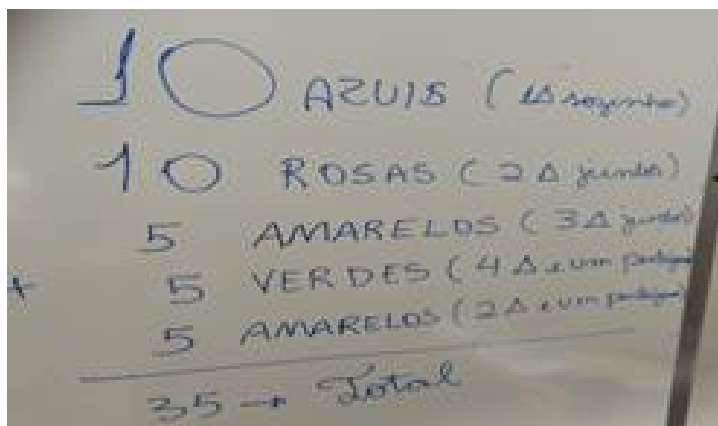 10 AZUIS (1Δ sozinho)
10 ROSAS (2 Δ juntos)
5 AMARELOS (3Δ juntos)
+ 5 VERDES (4 Δ e um
5 AMARELOS (2Δ e um
35 → Total